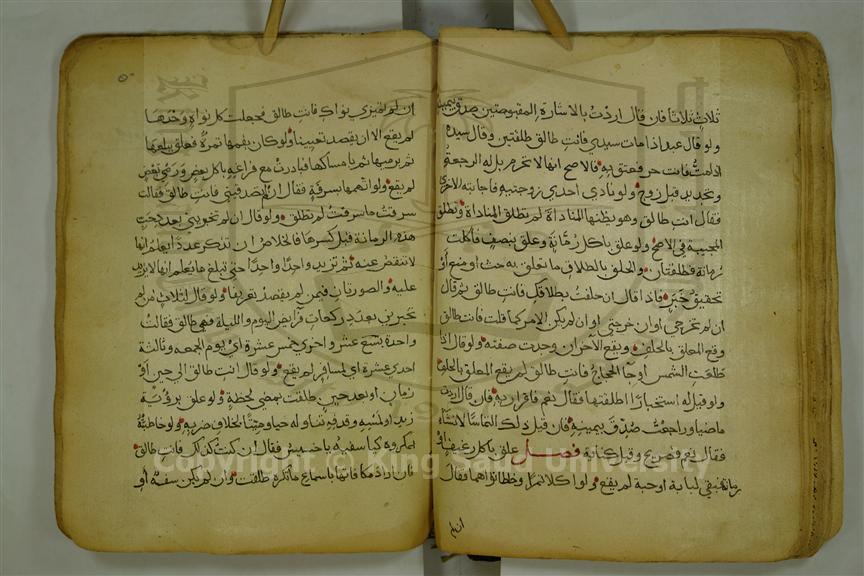 ثلاث ثلاثا فان قال اردت بالاشارة المقبوضتين صدق بيمينه
ولو قال عبد اذا مات سيدي فانت طالق طلقتين وقال سيده
اذا مت فانت حر فعتق به فالاصح انها لا تحرم بل له الرجعة
وتجديد قبل زوج ولو نادي احدي زوجتيه فاجابته الاخري
فقال انت طالق وهو يظنها المناداة لم تطلق المناداة وتطلق
المجيبة في الاصح ولو علق باكل رمانة وعلق بنصف فاكلت
رمانة فطلقتان والحلف بالطلاق ما تعلق به حث او منع او
تحقيق خبر فاذا قال ان حلفت بطلاقك فانت طالق ثم قال
ان لم تخرجي او ان خرجتي او ان لم يكن الامر كما قلت فانت طالق
وقع المعلق بالحلف ويقع الاخر ان وجدت صفته ولو قال اذا
طلعت الشمس او جا الحجاج فانت طالق لم يقع المعلق بالحلف
ولو قيل له استخبارا اطلقتها فقال نعم فاقرار به فان قال اردت
ماضيا وراجعت صدق بيمينه فان قيل ذلك التماسا لانشاء
فقال نعم فصريح وقيل كناية فصل علق باكل رغيف او
رمانة فبقي لبابة او حبة لم يقع ولو اكلا تمرا وخلطا نواهما فقال
ان لم
ان لم تميزي نواك فانت طالق فجعلت كل نواة وحدها
لم يقع الا ان يقصد تعيينا ولو كان بفمها تمرة فعلق ببلعها
ثم برميها ثم بامساكها فبادرت مع فراغه باكل بعض ورمي بعض
لم يقع ولو اتهمها بسرقة فقال ان لم تصدقيني فانت طالق فقالت
سرقت ما سرقت لم تطلق ولو قال ان لم تخبريني بعدد حب
هذه الرمانة قبل كسرها فالخلاص ان تذكر عددا يعلم انها
لا تنقص عنه ثم تزيد واحدا واحدا حتي تبلغ ما يعلم انها لا تزيد
عليه والصورتان فيمن لم يقصد تعريفا ولو قال لثلاث من لم
تخبرني بعدد ركعات فرايض اليوم والليلة فهي طالق فقالت
واحدة سبع عشر واخري خمس عشرة اي يوم الجمعه وثالثة
احدي عشرة اي لمسافر لم يقع ولو قال انت طالق الي حين او
زمان او بعد حين طلقت بمضي لحظة ولو علق برؤية
زيد او لمسه وقذفه تناوله حيا وميتا بخلاف ضربه ولو خاطبته
بمكروه كيا سفيه يا خسيس فقال ان كنت كذلك فانت طالق
فان اراد مكافاتها باسماع ما تكره طلقت وان لم يكن سفه او
Copyright © King Saud University